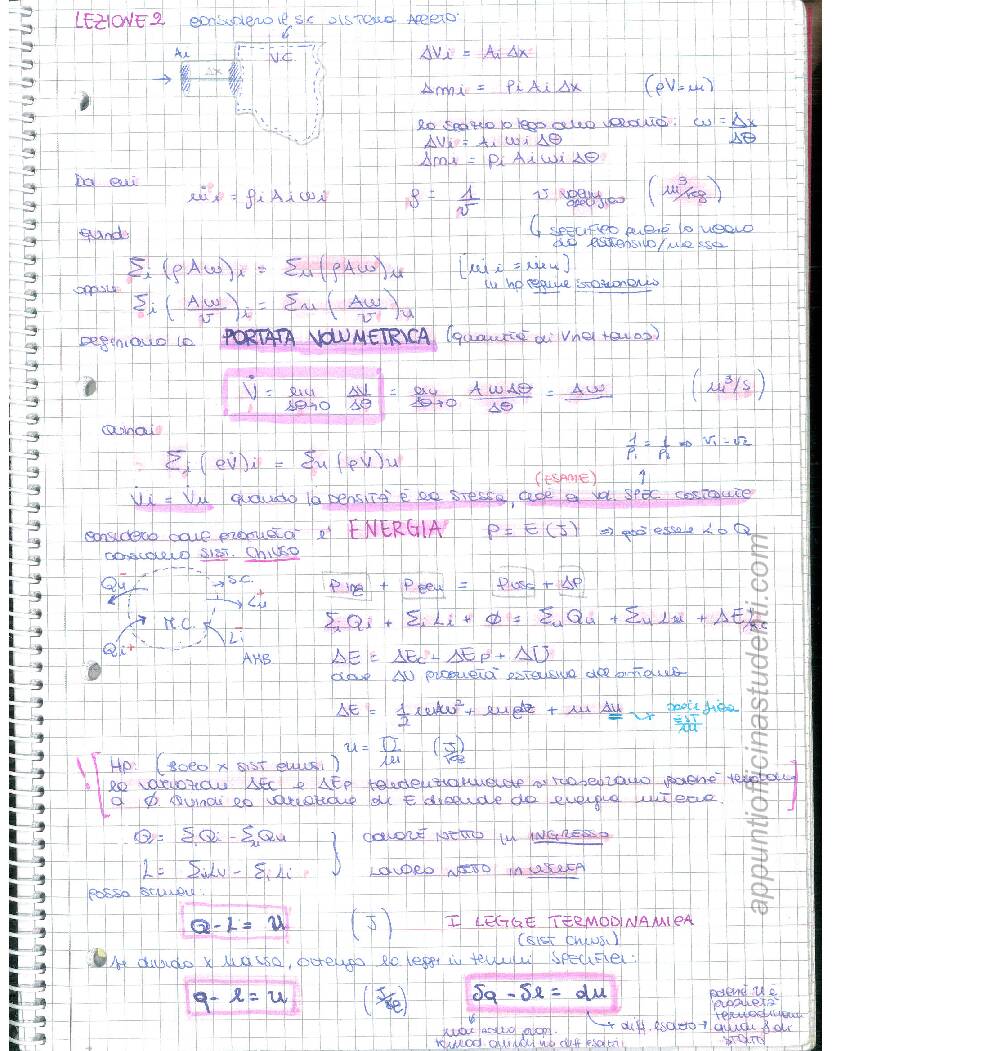 LEZIONE 2 considero il SC SISTEMA APERTO:
V.C.
Ai
Δx
ΔVi = Ai Δx
Δmi = ρi Ai Δx (ρV=m)
ω = Δx/Δθ
ΔVi = Ai ωi Δθ
Δmi = ρi Ai ωi Δθ
Da cui
ṁi = ρi Ai ωi ρ = 1/v v volume specifico (m³/kg)
↳ specifico perché lo
estensivo/massa
quindi
Σi (ρAω)i = Σu (ρAω)u [ṁi = ṁu]
in hp regime stazionario
oppure
Σi (Aω/v)i = Σu (Aω/v)u
Definiamo la PORTATA VOLUMETRICA (quantità di V nel tempo)
V̇ = lim Δθ→0 ΔV/Δθ = lim Δθ→0 A ω Δθ/Δθ = Aω (m³/s)
quindi
1/ρ1 = 1/ρ2 ⇒ v1 = v2
Σi (ρV̇)i = Σu (ρV̇)u
(ESAME)
V̇i = V̇u quando la DENSITÀ È la STESSA, cioè a vol. SPEC costante
considero come proprietà l' ENERGIA P = E (J) ⇒ può essere L o Q
considero SIST. CHIUSO
Qu⁻
S.C.
Lu⁺
M.C.
Li⁻
Qi⁺
AMB
Ping + Pgen = Pusc + ΔP
Σi Qi + Σi Li + Φ = Σu Qu + Σu Lu + ΔE
ΔE = ΔEc + ΔEp + ΔU
dove ΔU proprietà estensiva del sistema
ΔE = 1/2 mΔω² + mgΔz + mΔu
u = U/m (J/kg)
HP: (SOLO x SIST CHIUSI)
le variazioni ΔEc e ΔEp tendenzialmente si trascurano perché tendono
a Φ quindi la variazione di E dipende da energia interna.
Q = Σi Qi - Σu Qu CALORE NETTO in INGRESSO
L = Σu Lu - Σi Li LAVORO NETTO in USCITA
posso scrivere:
Q - L = U (J) I LEGGE TERMODINAMICA
(SIST CHIUSI)
Se divido x massa, ottengo la legge in termini SPECIFICI:
q - l = u (J/kg) δq - δl = du
↳ diff. esatto →
perché u è
proprietà
termodinamica
quindi f di
stato
appuntiofficinastudenti.com